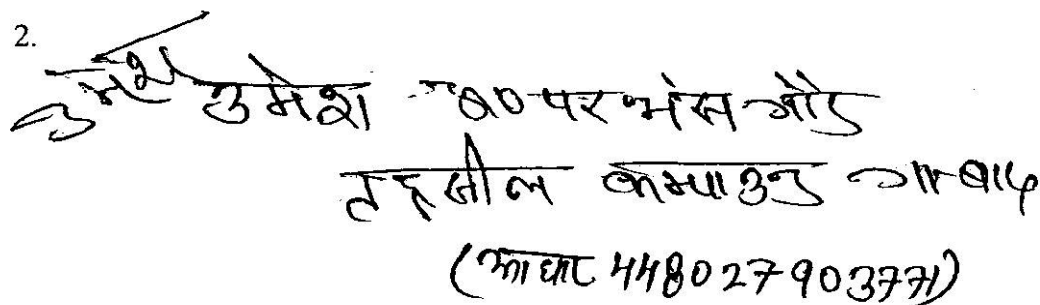 2.
उमेश उमेश S/O परमहंस गौड़
तहसील कम्पाउन्ड गा०बाद
(आधार 448027903771)